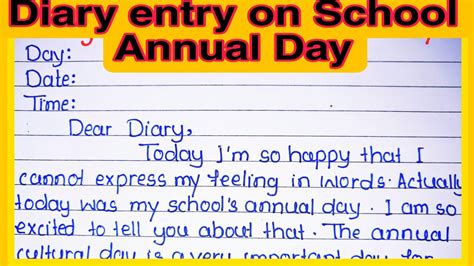 Diary entry on School
Annual Day
Day:
Date:
Time:
Dear Diary,
Today I'm so happy that I
cannot express my feeling in words. Actually
today was my school's annual day. I am so
excited to tell you about that. The annual
cultural day is a very important day for